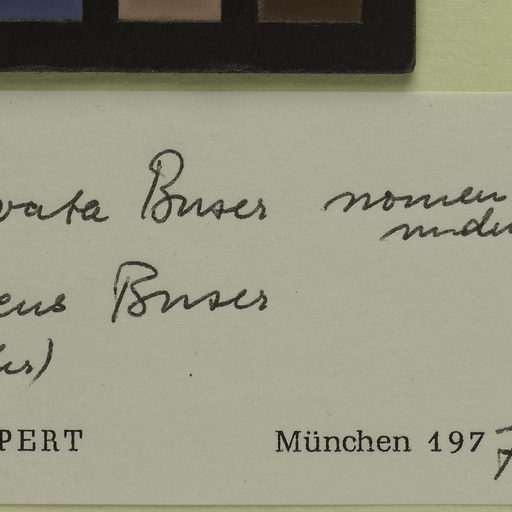 vata Buser nomen
nudu
eus Buser
PERT München 197